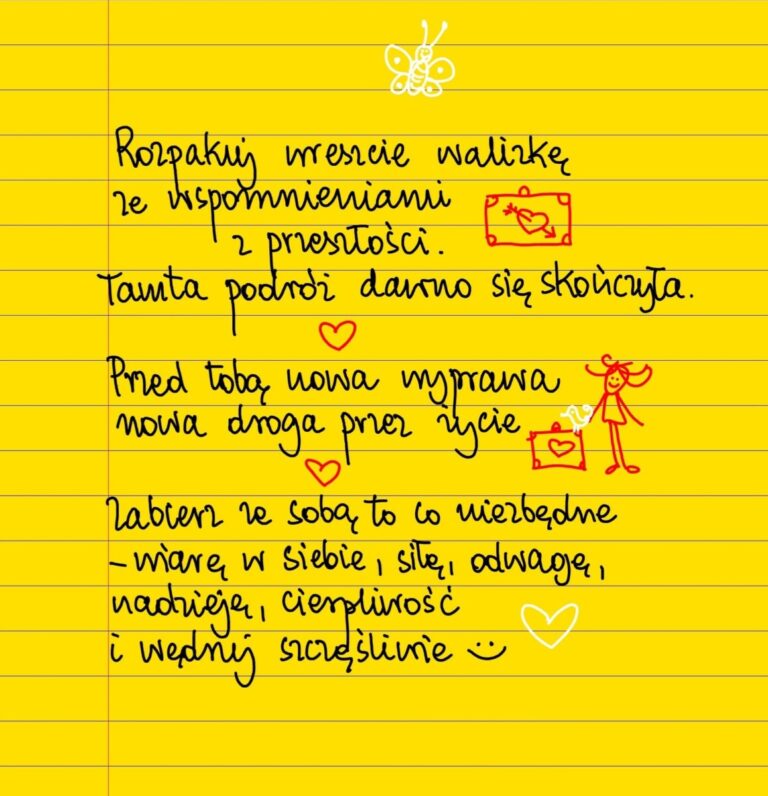 Rozpakuj wreszcie walizkę
ze wspomnieniami
z przeszłości.
Tamta podróż dawno się skończyła.
Przed tobą nowa wyprawa
nowa droga przez życie
Zabierz ze sobą to co niezbędne
- wiarę w siebie, siłę, odwagę,
nadzieję, cierpliwość
i wędruj szczęśliwie :)